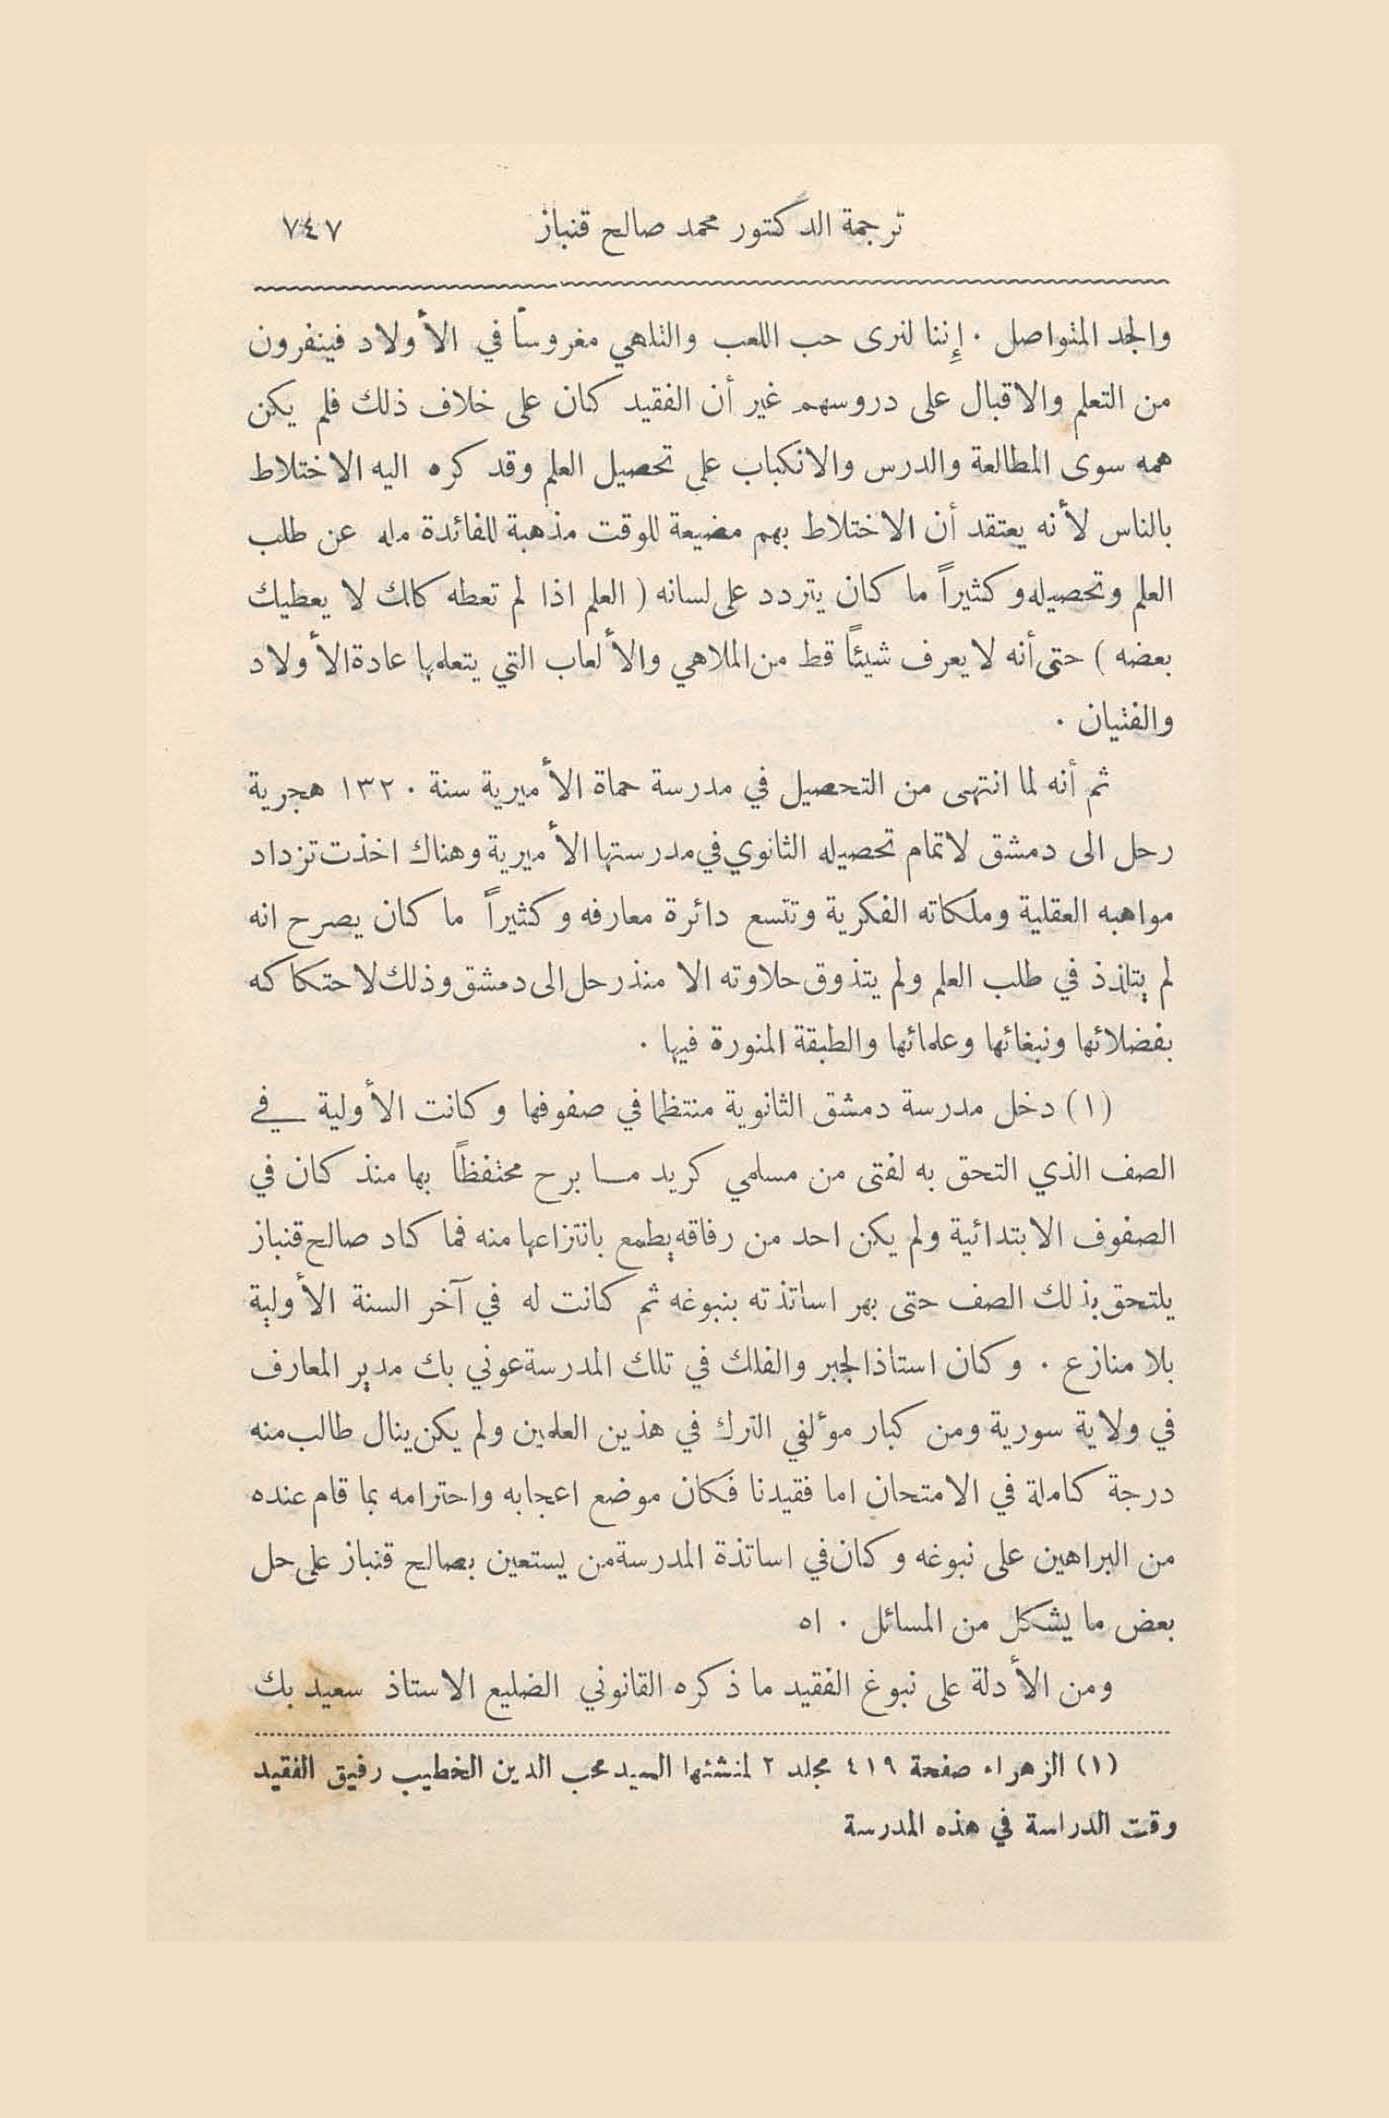 ترجمة الدكتور محمد صالح قنباز ٧٤٧
والجد المتواصل . إننا لنرى حب اللعب والتلهي مغروساً في الأولاد فينفرون
من التعلم والاقبال على دروسهم غير أن الفقيد كان على خلاف ذلك فلم يكن
همه سوى المطالعة والدرس والانكباب على تحصيل العلم وقد كره اليه الاختلاط
بالناس لأنه يعتقد أن الاختلاط بهم مضيعة للوقت مذهبة للفائدة مله عن طلب
العلم وتحصيله وكثيراً ما كان يتردد على لسانه ( العلم اذا لم تعطه كلك لا يعطيك
بعضه ) حتى أنه لا يعرف شيئاً قط من الملاهي والألعاب التي يتعلمها عادة الأولاد
والفتيان .
ثم أنه لما انتهى من التحصيل في مدرسة حماة الأميرية سنة ١٣٢٠ هجرية
رحل الى دمشق لاتمام تحصيله الثانوي في مدرستها الأميرية وهناك اخذت تزداد
مواهبه العقلية وملكاته الفكرية وتتسع دائرة معارفه وكثيراً ما كان يصرح انه
لم يتلذذ في طلب العلم ولم يتذوق حلاوته الا منذ رحل الى دمشق وذلك لاحتكاكه
بفضلائها ونبغائها وعلمائها والطبقة المنورة فيها .
(١) دخل مدرسة دمشق الثانوية منتظما في صفوفها وكانت الأولية في
الصف الذي التحق به لفتى من مسلمي كريد ما برح محتفظاً بها منذ كان في
الصفوف الابتدائية ولم يكن احد من رفاقه يطمع بانتزاعها منه فما كاد صالح قنباز
يلتحق بذلك الصف حتى بهر اساتذته بنبوغه ثم كانت له في آخر السنة الأولية
بلا منازع . وكان استاذ الجبر والفلك في تلك المدرسة عوني بك مدير المعارف
في ولاية سورية ومن كبار مؤلفي الترك في هذين العلمين ولم يكن ينال طالب منه
درجة كاملة في الامتحان اما فقيدنا فكان موضع اعجابه واحترامه بما قام عنده
من البراهين على نبوغه وكان في اساتذة المدرسة من يستعين بصالح قنباز على حل
بعض ما يشكل من المسائل . اه
ومن الأدلة على نبوغ الفقيد ما ذكره القانوني الضليع الاستاذ سعيد بك
(١) الزهراء صفحة ٤١٩ مجلد ٢ لمنشئها السيد محب الدين الخطيب رفيق الفقيد
وقت الدراسة في هذه المدرسة